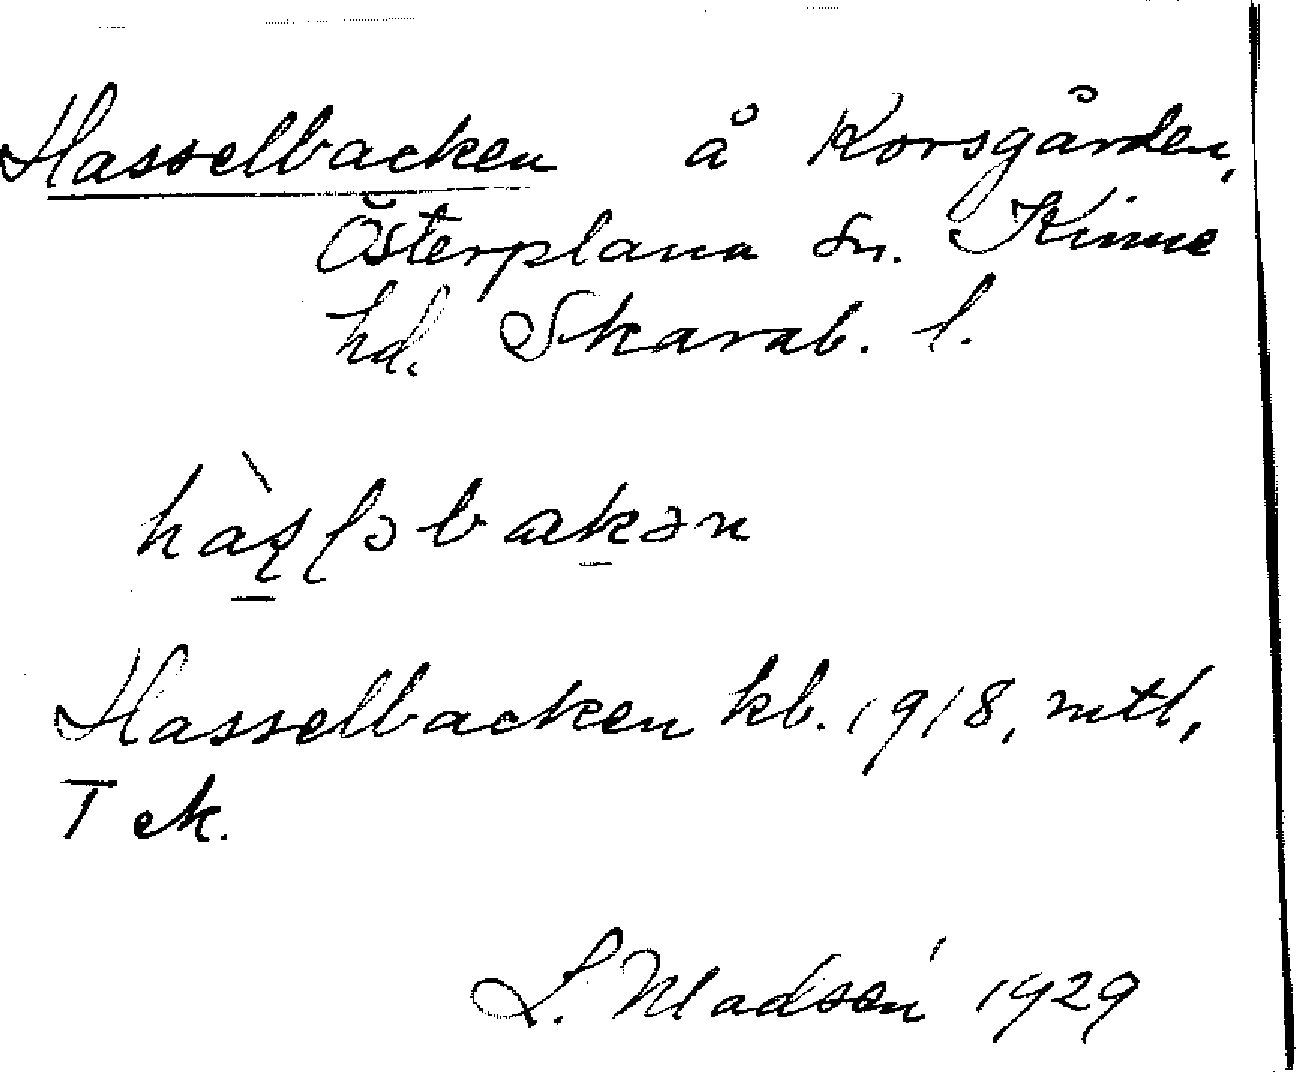 Hasselbacken å Korsgården,
Österplana sn. Kinne
hd. Skarab. l.
Hasselbacken kb. 1918, mtl,
T ek.
L. Madsén 1929